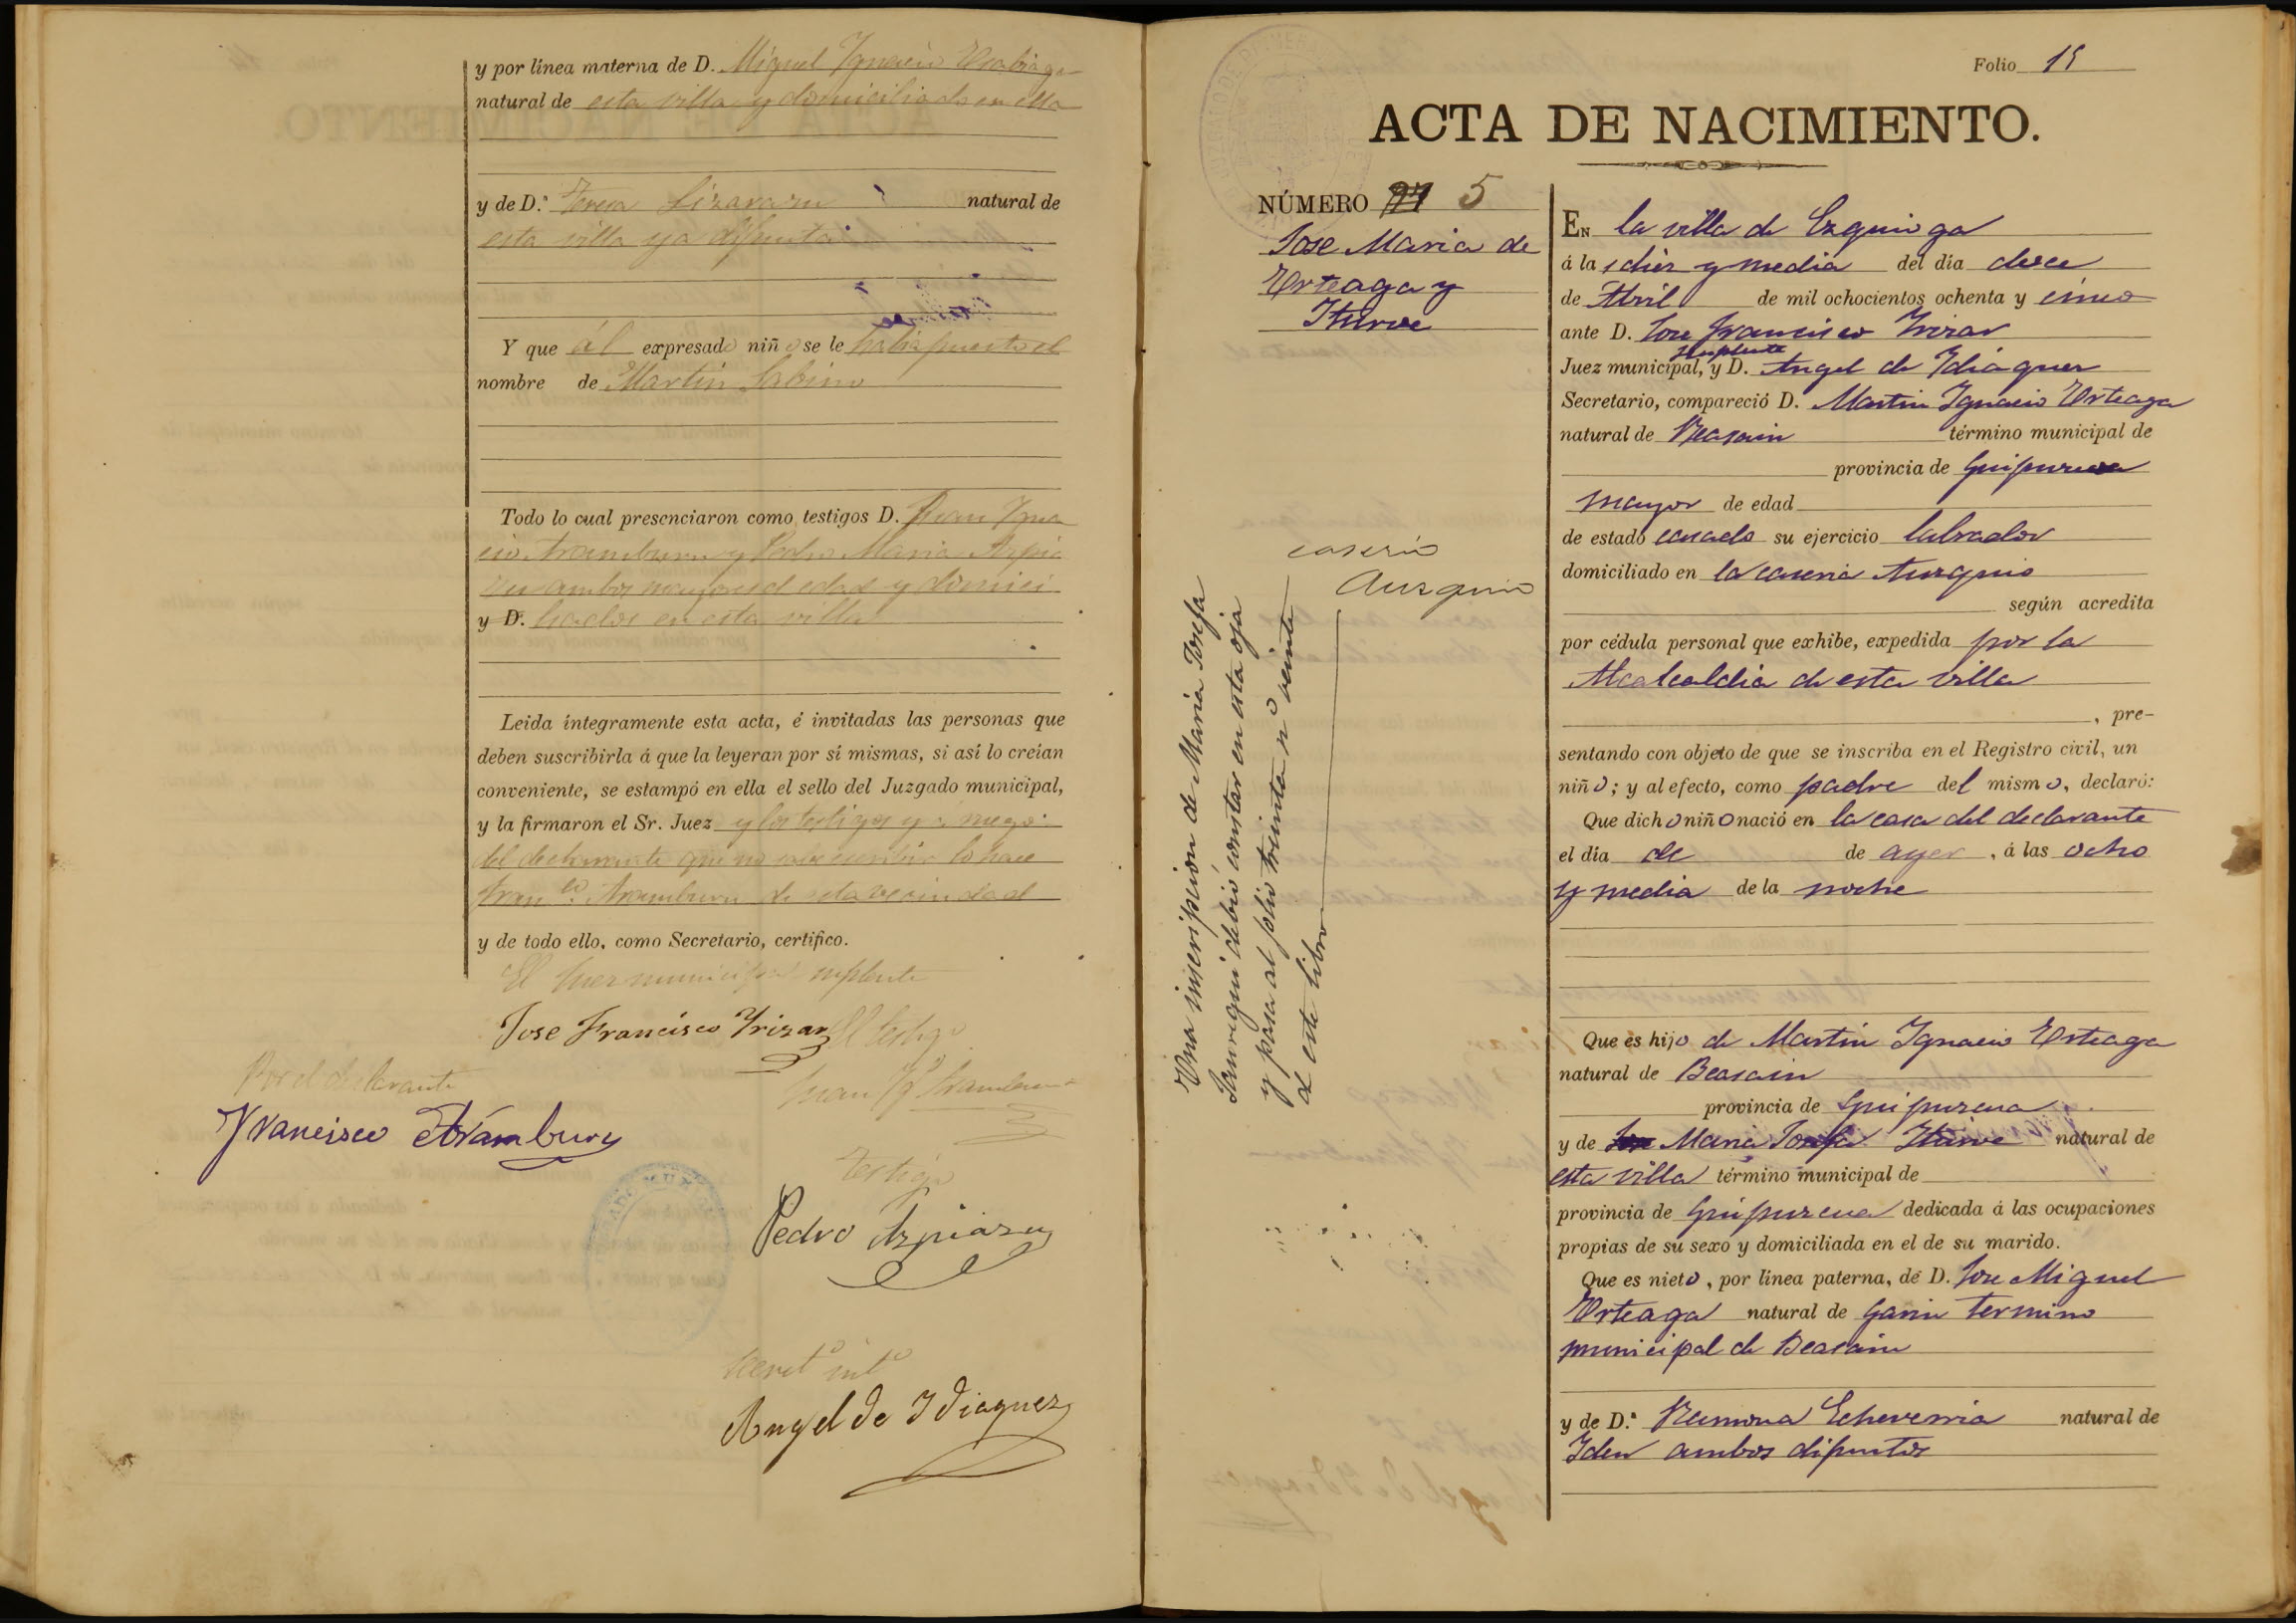 y por línea materna de D. Miguel Ygnacio
natural de esta villa y domiciliado en ella
y de D.ª Teresa Lizarazu natural de
esta villa ya difunta
Y que al expresado niño se le había puesto el
nombre de Martin Sabino
Todo lo cual presenciaron como testigos D. Juan Ygna
cio Aramburu y Pedro Maria Azpia
zu ambos mayores d edad y domici
y D. liados en esta villa
Leida íntegramente esta acta, é invitadas las personas que
deben suscribirla á que la leyeran por sí mismas, si así lo creían
conveniente, se estampó en ella el sello del Juzgado municipal,
y la firmaron el Sr. Juez y los testigos y á ruego
del declarante que no sabe escribir lo hace
Fran.co Aramburu de esta vecindad
y de todo ello, como Secretario, certifico.
El Juez municipal suplente
Jose Francisco Yrizar
El testigo
Juan Yg.º Aramburu
Por el declarante
Francisco Aramburu
Testigo
Pedro Azpiazu
Secret.º int.º
Angel de Ydiaquez
Folio 15
ACTA DE NACIMIENTO.
NÚMERO 5
Jose Maria de
Urteaga y
Yturve
caserio
Aurquin
Una inscripcion de Maria Josefa
Jauregui debió constar en esta oja
y pasa al folio treinta nº veinte
de este libro
En la villa de Ezquioga
á las diez y media del día doce
de Abril de mil ochocientos ochenta y cinco
ante D. Jose Francisco Yrizar
suplente
Juez municipal, y D. Angel de Ydiaquez
Secretario, compareció D. Martin Ygnacio Urteaga
natural de Beasain término municipal de
provincia de Guipuzcoa
mayor de edad
de estado casado su ejercicio labrador
domiciliado en la caseria Aurquio
según acredita
por cédula personal que exhibe, expedida por la
Alcalcaldia de esta villa
, pre-
sentando con objeto de que se inscriba en el Registro civil, un
niño; y al efecto, como padre del mismo, declaró:
Que dicho niño nació en la casa del declarante
el día de de ayer, á las ocho
y media de la noche
Que es hijo de Martin Ygnacio Urteaga
natural de Beasain
provincia de Guipuzcua
y de Maria Josefa Yturve natural de
esta villa término municipal de
provincia de Guipuzcua dedicada á las ocupaciones
propias de su sexo y domiciliada en el de su marido.
Que es nieto, por línea paterna, de D. Jose Miguel
Urteaga natural de Garin termino
municipal de Beasain
y de D.ª Ramona Echeverria natural de
Iden ambos difuntos